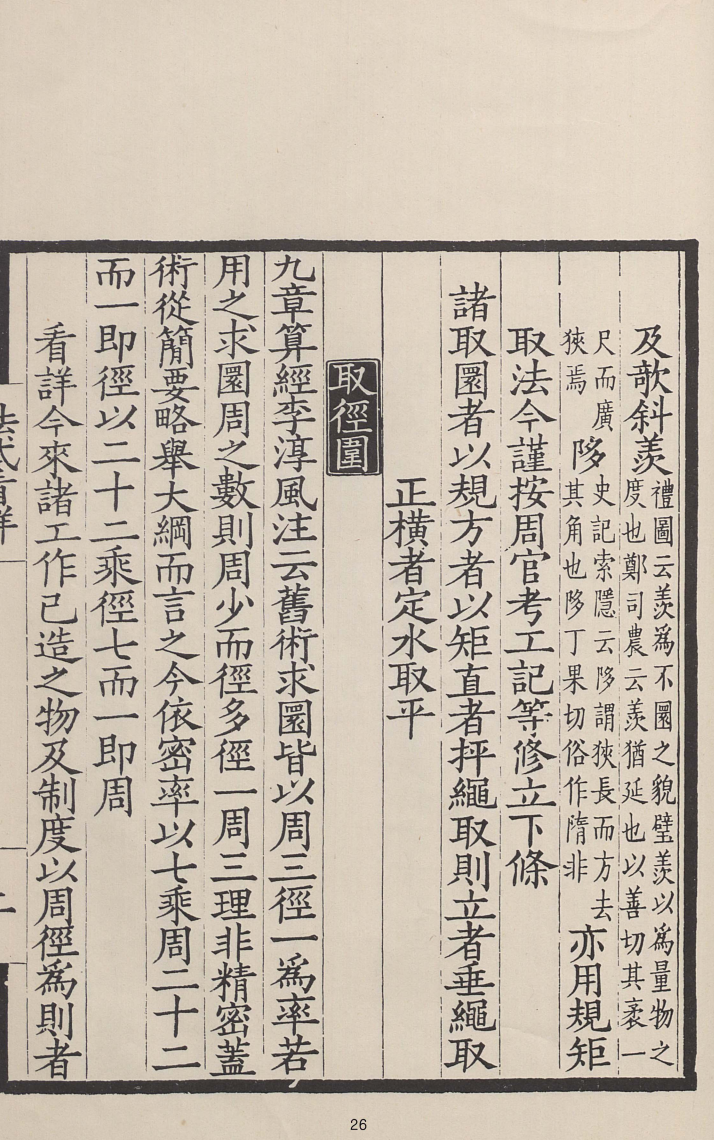 及歌斜羨禮圖云羨為不圜之貌璧羨以為量物之
度也鄭司農云羨猶延也以善切其袤一
尺而廣狹焉陊史記索隱云陊謂狹長而方去
其角也陊丁果切俗作隋非亦用規矩
取法今謹按周官考工記等修立下條
諸取圜者以規方者以矩直者抨繩取則立者垂繩取
正橫者定水取平
取徑圍
九章算經李淳風注云舊術求圜皆以周三徑一為率若
用之求圜周之數則周少而徑多徑一周三理非精密蓋
術從簡要略舉大綱而言之今依密率以七乘周二十二
而一即徑以二十二乘徑七而一即周
看詳今來諸工作已造之物及制度以周徑為則者
法式看詳
二
26